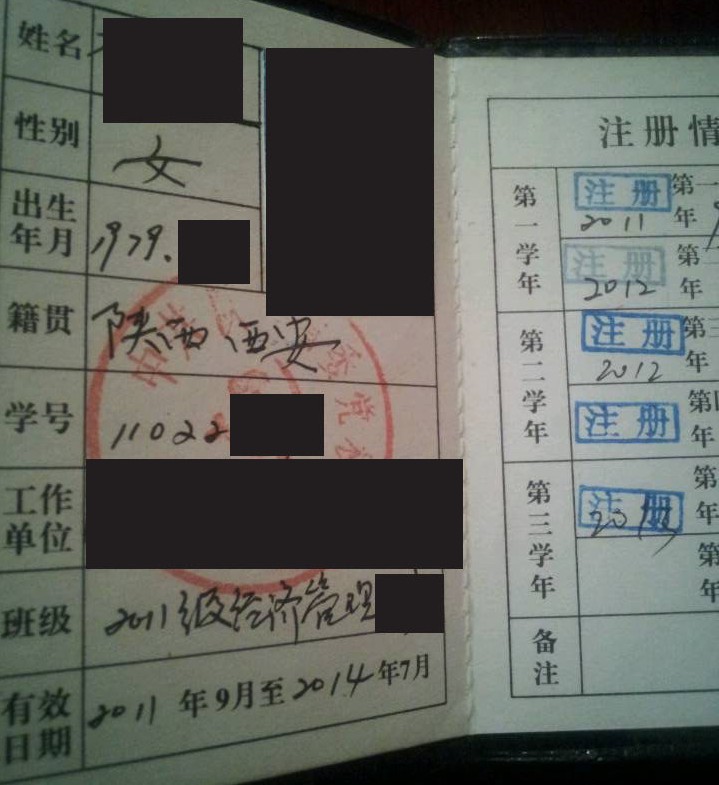 姓名
性别 女
出生年月 1979.
籍贯 陕西 西安
学号 11022
工作单位
班级 2011级经济管理
有效日期 2011 年9月至2014年7月
注册情
第一学年
注册 第一
2011 年
注册
2012 年
第二学年
注册 第三
2012 年
注册 第
年
第三学年
注册 第
年
第
年
备注